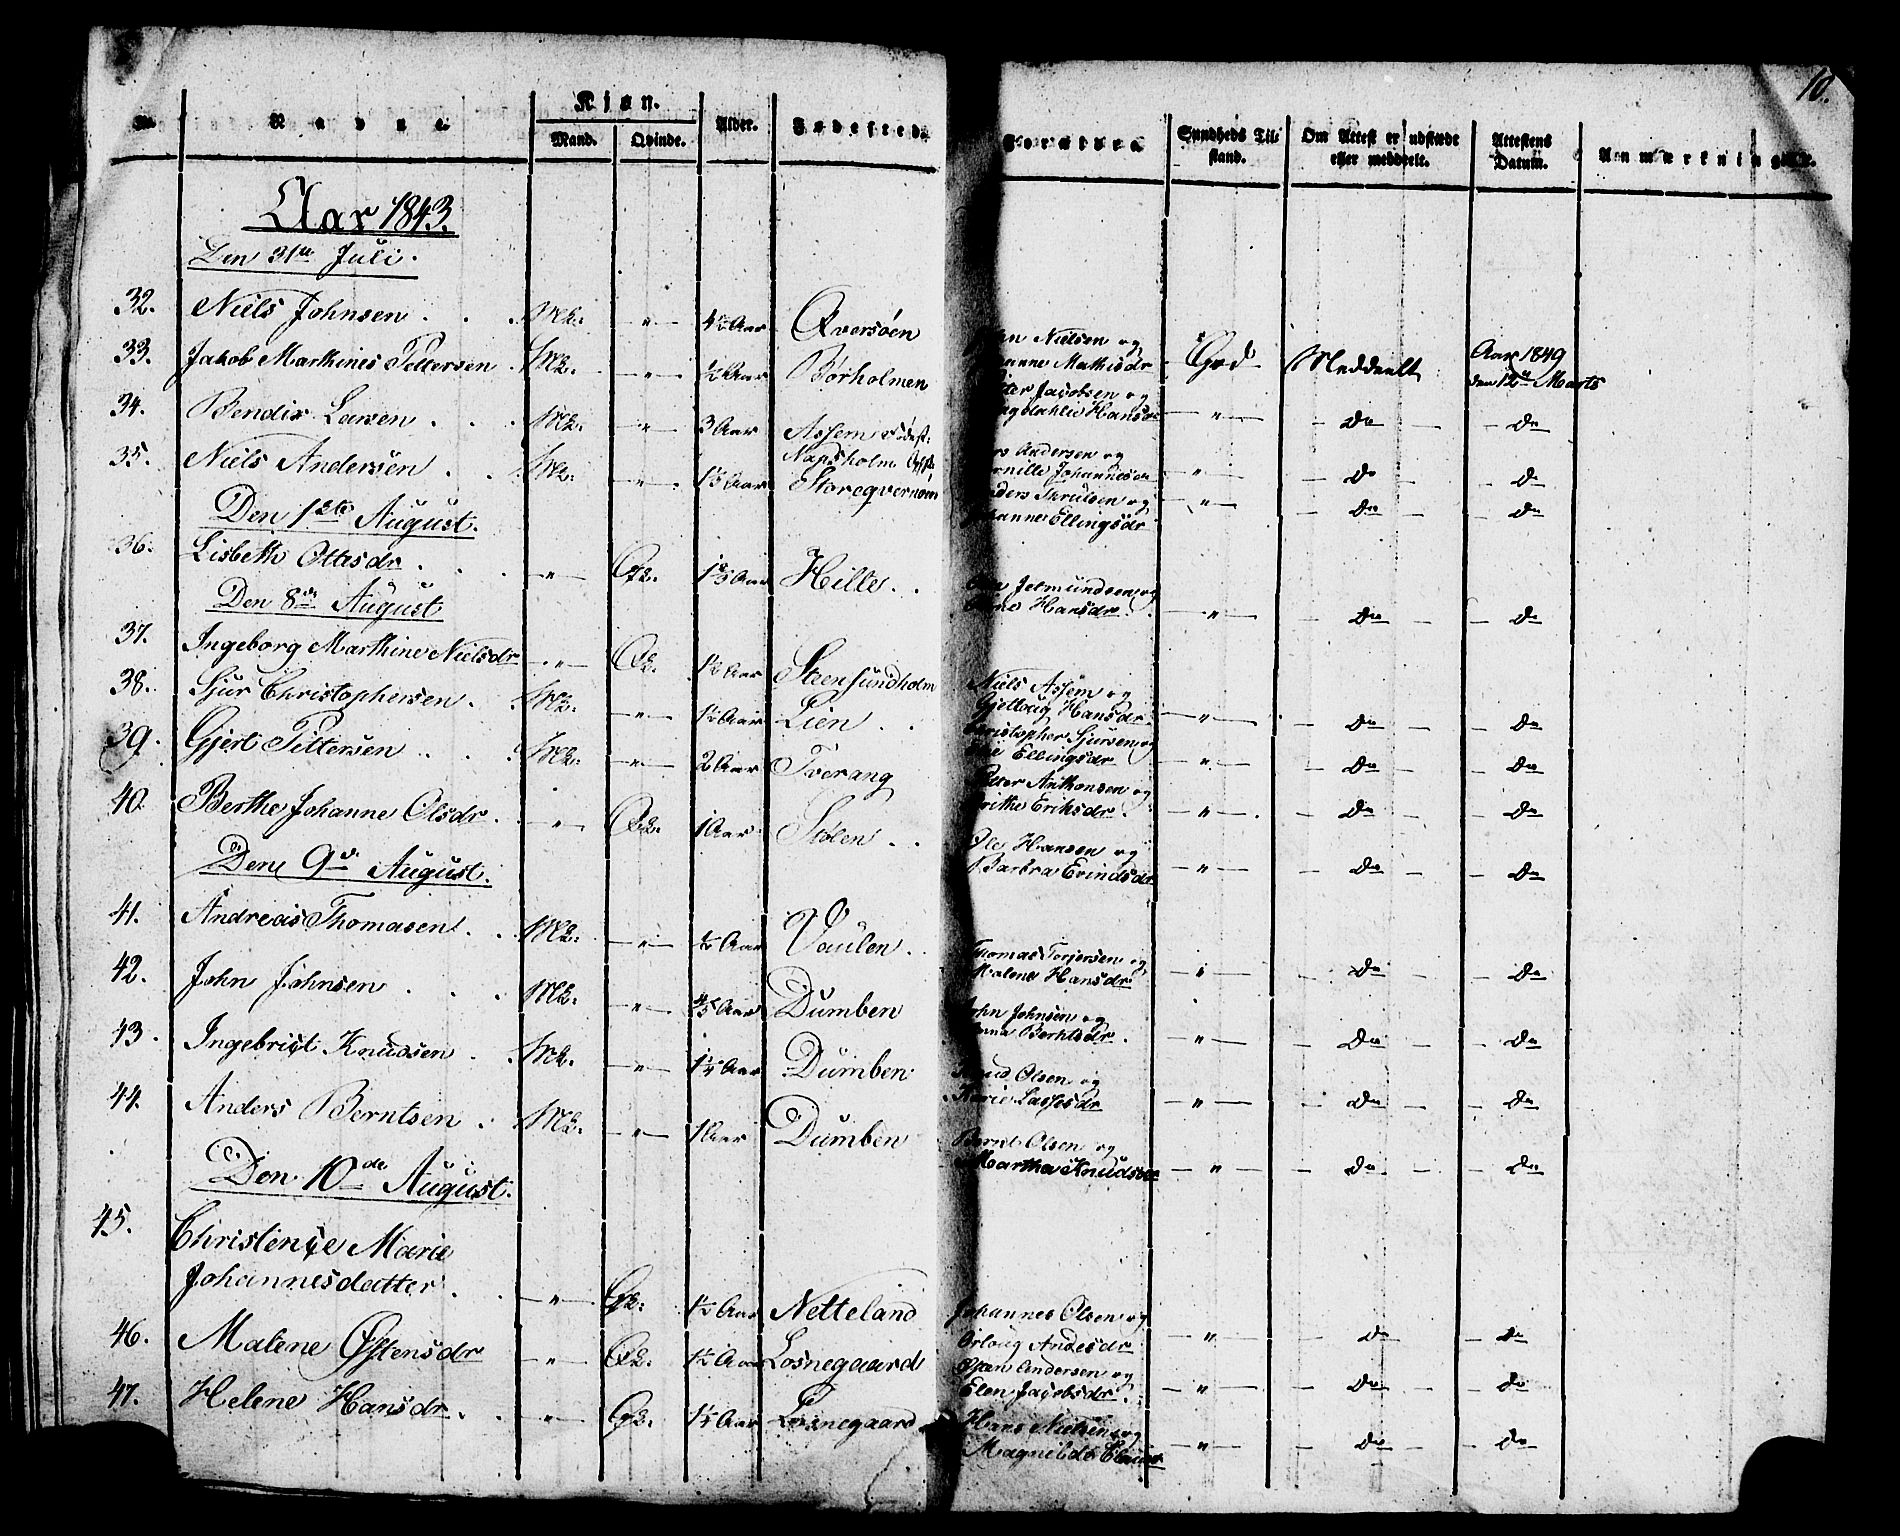 10.
No. Navne. Kjøn. Alder. Fødested. Forældre. Sundheds Tilstand. Om Attest er udstædt eller meddeelt. Attestens Datum. Anmærkninger.
Mand. Qvinde.
Aar 1843.
Den 31te Juli.
32. Niels Johnsen . . . Mk. — " — 4½ Aar Qversöen Nielsen og Mathisdr God Meddeelt Aar 1849 den 12te Marts
33. Jakob Marthines Pettersen . Mk. — " — ½ Aar Börholmen Jacobsen og Hansdr — " — — do — — do
34. Bendix Larsen . . . Mk. — " — 3 Aar Assem Andersen og Johannesdr — " — — do — do
35. Niels Andersen . . Mk. — " — Aar Storeqvernöen og Johanne Ellingsdr — " — — do — — do
Den 1ste August.
36. Lisbeth Ottesdr . . . — " — Qk. Aar Hille . . Jetmundsen og Hansdr — " — — do — — do
Den 8de August
37. Ingeborg Marthine Nielsdr — " — Qk. 1½ Aar Steensundholm Niels Assem og Hansdr — " — — do — — do
38. Sjur Christophersen . . Mk. — " — 1½ Aar Lien . . Christopher Sjursen og Ellingsdr — " — — do — — do
39. Gjert Pettersen . . . Mk. — " — 2 Aar Tverang Petter Anthonsen og Brithe Eriksdr . — " — . — do — — do
40. Berthe Johanne Olsdr . . — " — Qk. 1 Aar Stölen . . Ole Hansen og Barbra Evindsdr — " — — do — — do
Den 9de August.
41. Andreas Thomasen . . Mk. — " — ½ Aar Vaulen . . Thomas Torjersen og Malene Hansdr — " — — do — — do
42. John Johnsen . . . Mk. — " — Aar Dumben John Johnsen og Anna Berntsdr . — " — — do — — do
43. Ingebrigt Knudsen . . Mk. — " — 1¼ Aar Dumben Knud Olsen og Karie Lassesdr — " — — do — — do
44. Anders Berntsen . . Mk. — " — 1 Aar Dumben Bernt Olsen og Martha Knudsdr — " — — do — — do
Den 10de August.
45. Christence Marie
Johannesdatter . . — " — Qk. 1½ Aar Netteland Johannes Olsen og Andersdr — " — — do — do
46. Malene Östensdr — " — Qk. 1½ Aar Losnegaard Östen Andersen og Elen Jacobsdr . — " — — do — — do
47. Helene Hansdr . . — " — Qk. Aar Losnegaard Hans Nielsen og Magnilde — " — — do — — do